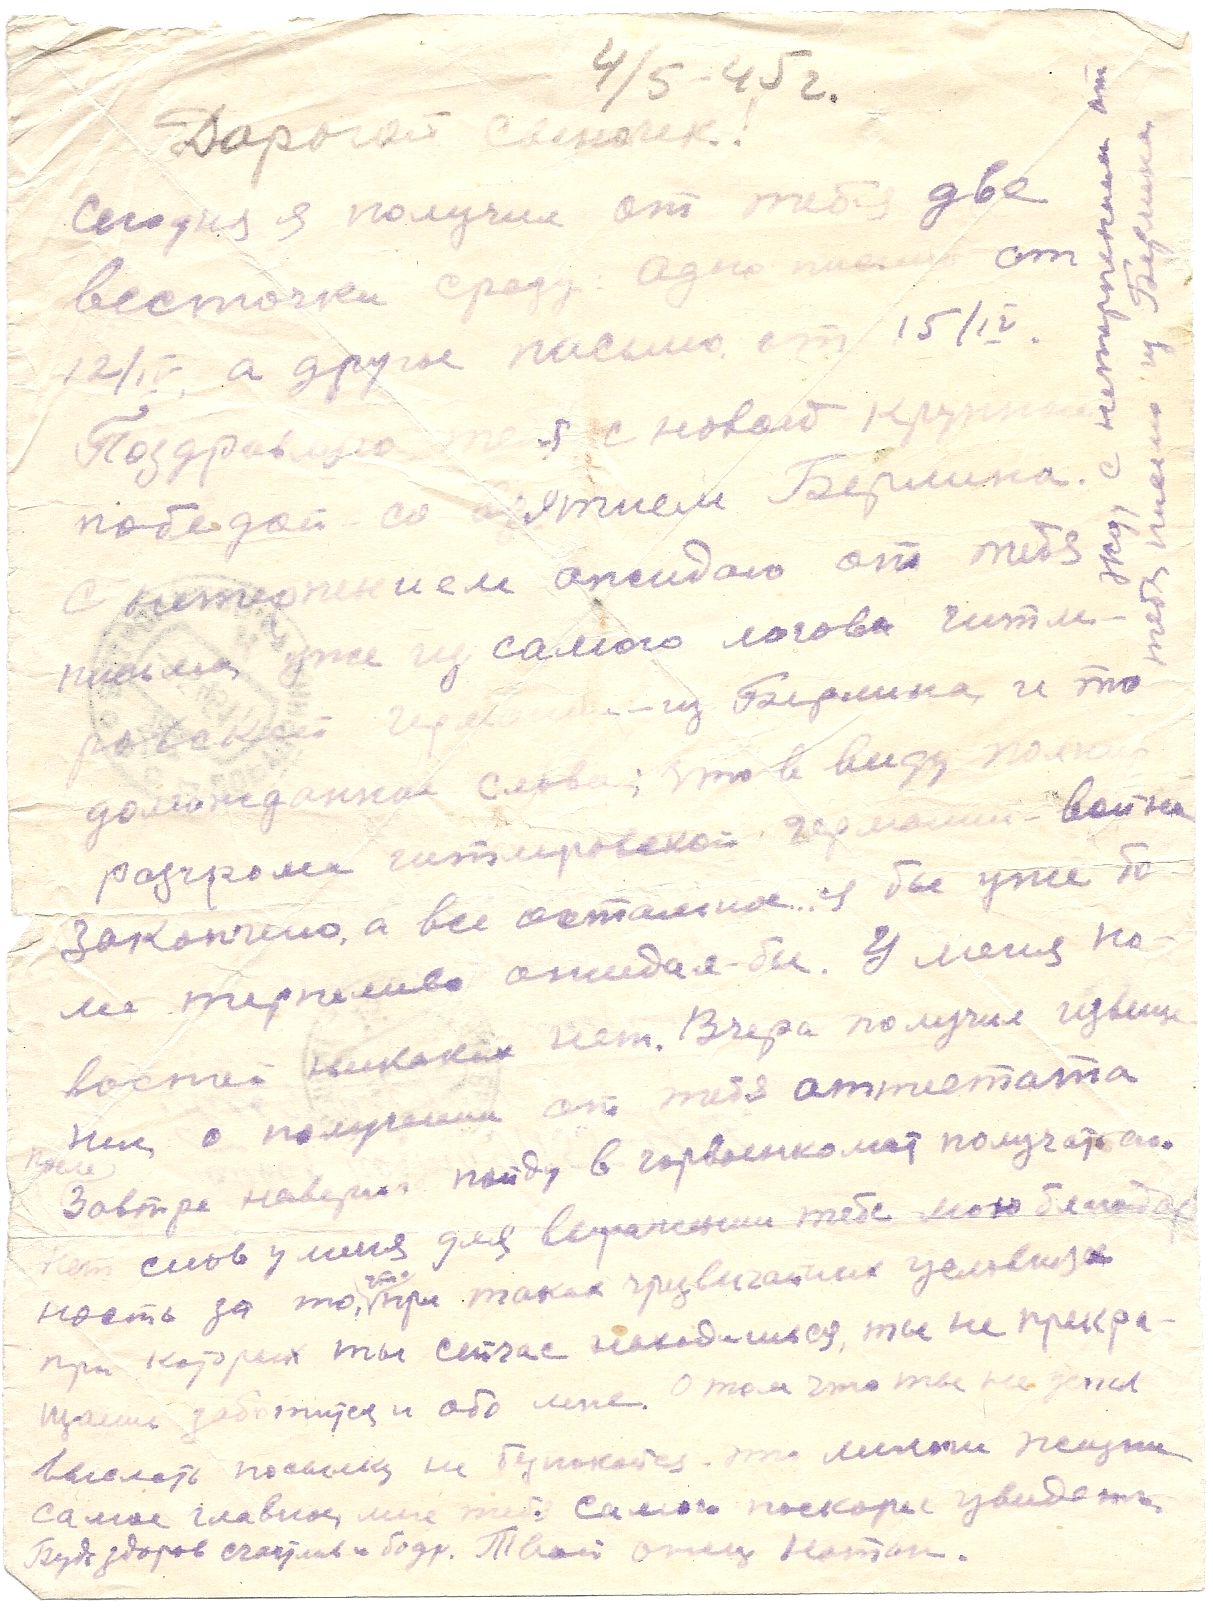 4/5-45 г.
Дорогой сыночек!
Сегодня я получил от тебя две
весточки сразу: одно письмо от
12/IV, а другое письмо от 15/IV.
Поздравляю тебя с новой крупной
победой - со взятием Берлина.
С нетерпением ожидаю от тебя
письма уже из самого логова гитле-
ровской германии - из Берлина и то
долгожданное слово, что в виду полного
разгрома гитлеровской германии - война
закончено, а все остальное.. я бы уже бо
лее терпеливо ожидал-бы. У меня но-
востей никаких нет. Вчера получил извеще-
ние о получении от тебя аттестата
Завтра наверно пойду в горвоенкомат получать его.
Нет слов у меня для выражении тебе мою благодар
ность за то, что при таких чрезвычайных условиях
при которых ты сейчас находишься, ты не прекра-
щаеш заботится и обо мне. О том что ты не успел
выслать посылку не беспокойся - это мелочи жизни
самое главное, мне тебя самого поскорее увидеть.
Будь здоров счастлив и бодр. Твой отец Натан.
Жду с нетерпением от
тебя письмо из Берлина